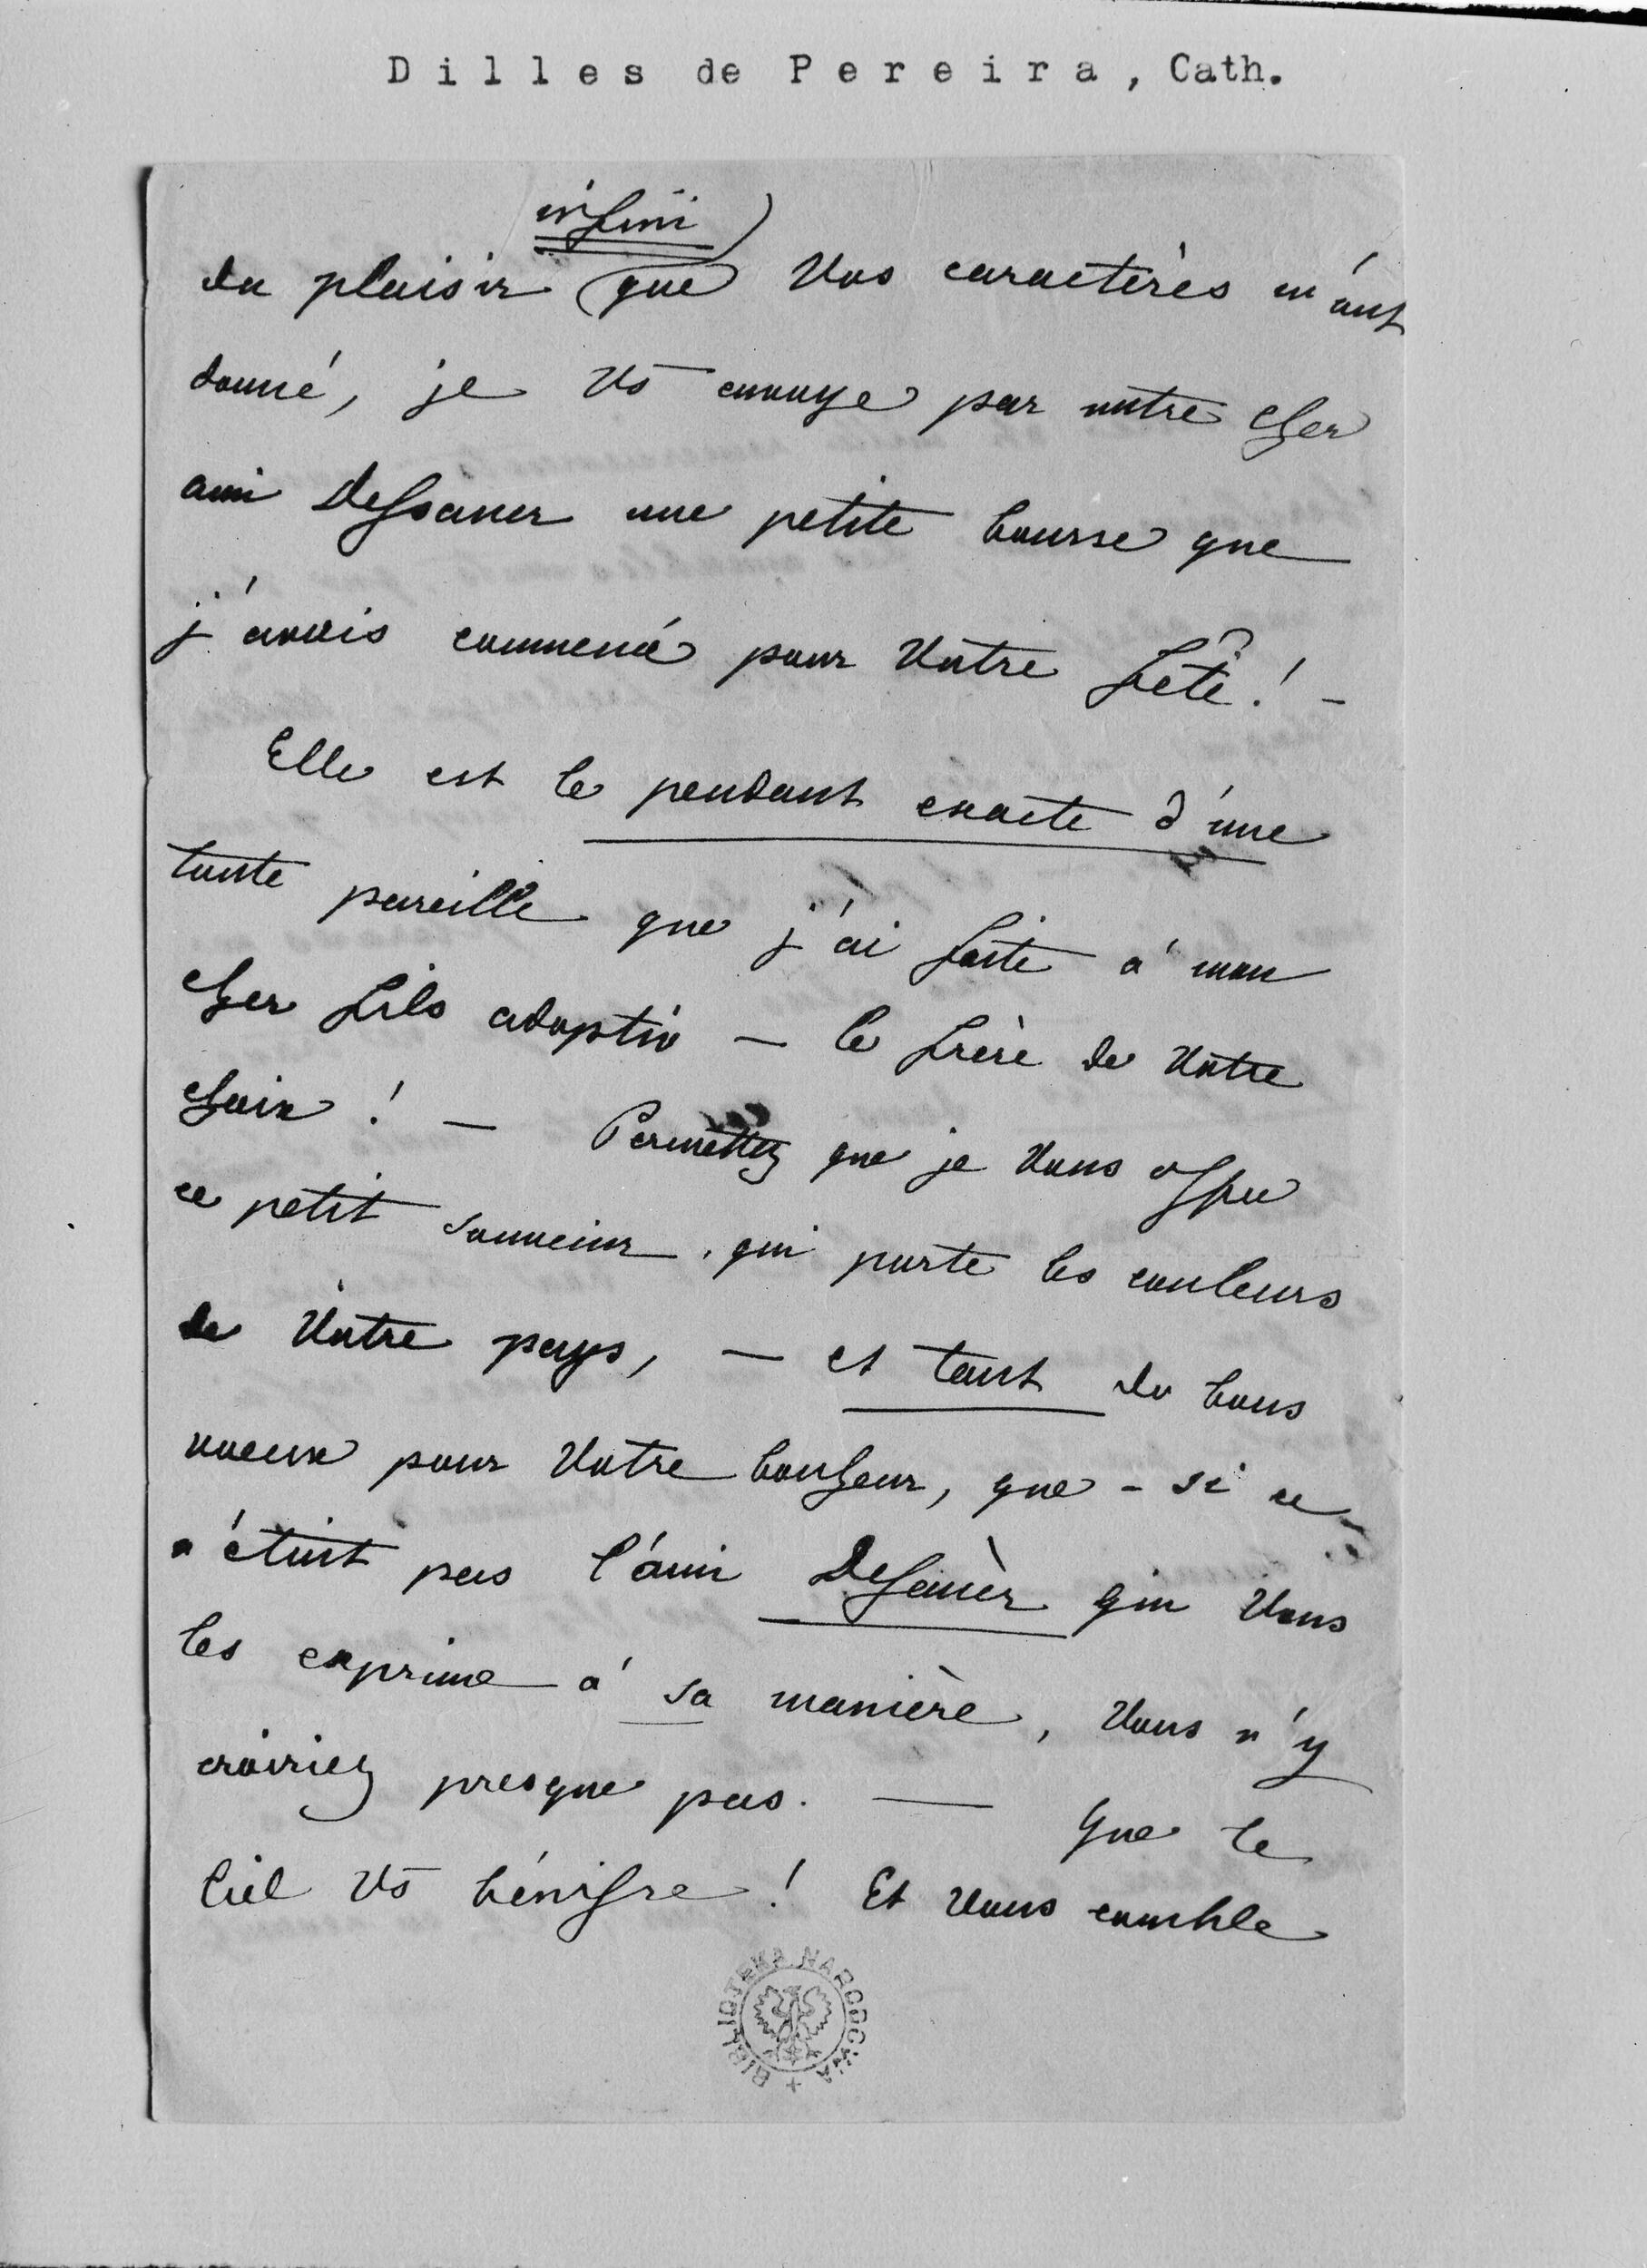 Dilles de Pereira, Cath.
infini
du plaisir que Vos caractères m'ont
donné, je Vs envoye par notre cher
ami Dessauer une petite bourse que
j'avais commencé pour Votre fête! –
Elle est le pendant exacte d'une
toute pareille que j'ai faite à mon
cher fils adoptiv – le frère de Votre
choix! – Permettez que je Vous offre
ce petit souvenir, qui porte les couleurs
de Votre pays, – et tant de bons
voeux pour Votre bonheur, que – si ce
n'étoit pas l'ami Dessauèr qui Vous
les exprime à sa manière, Vous n'y
croiriez presque pas. — Que le
Ciel Vs bénisse! Et Vous comble
BIBLIOTEKA NARODOWA